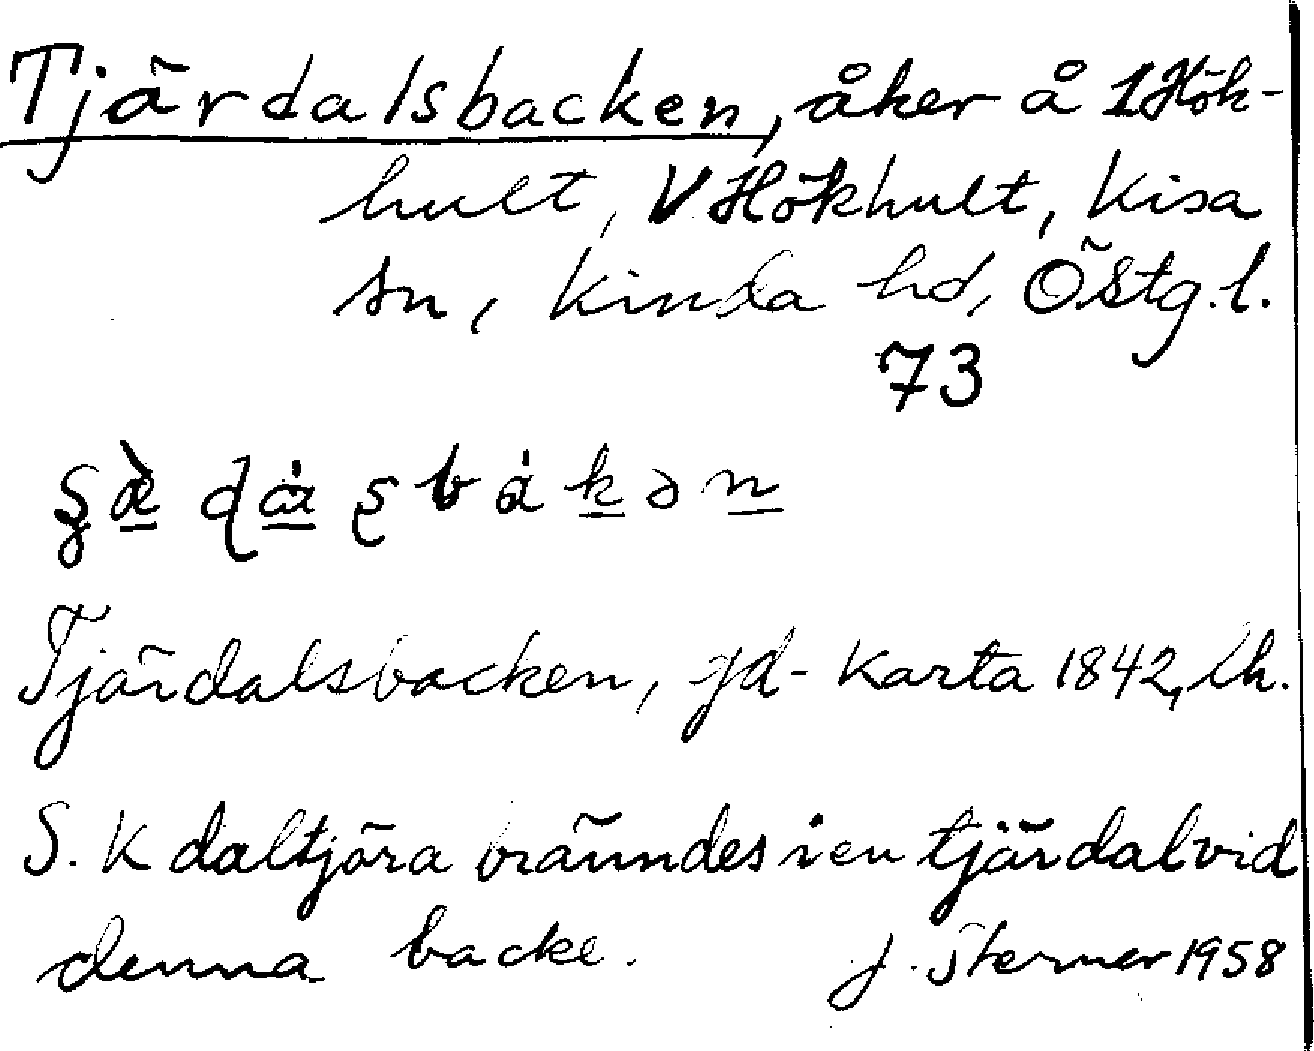 Tjärdalsbacken, åker å 1 Hök-
hult, V Hökhult, Kisa
sn, Kinda hd, Östg.l.
73
Tjärdalsbacken, jd- karta 1842, lh.
S. K daltjära brändes i en tjärdal vid
denna backe. J. Sterner 1958